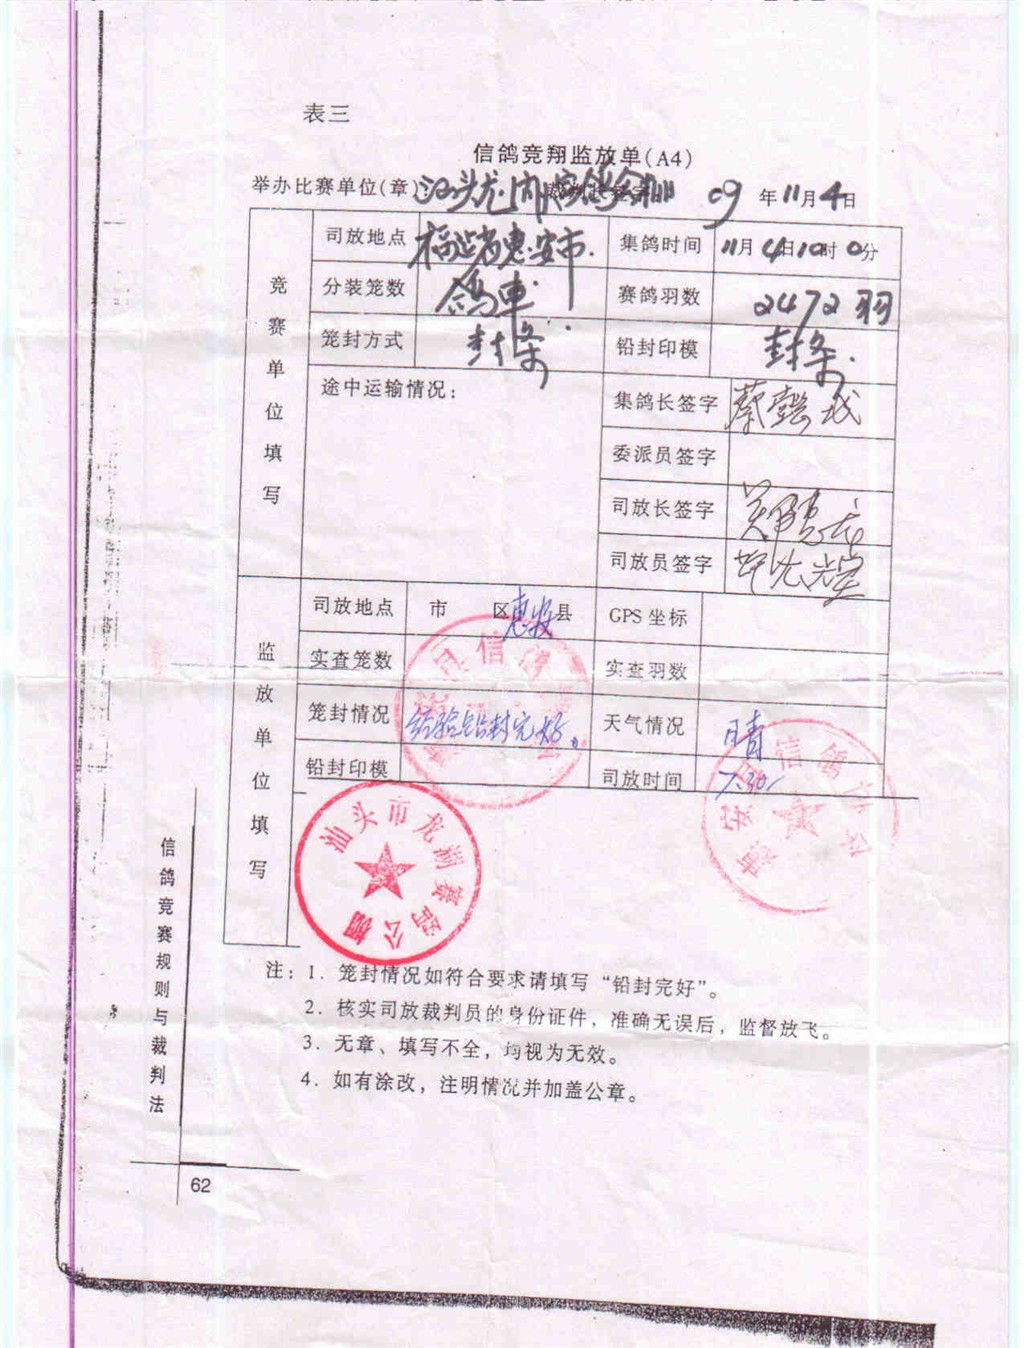 表三
信鸽竞翔监放单(A4)
举办比赛单位(章) 09年11月4日
竞赛单位填写
司放地点 福建省惠安市. 集鸽时间 11月4日10时0分
分装笼数 鸽車 赛鸽羽数 2472羽
笼封方式 封条 铅封印模 封条.
途中运输情况: 集鸽长签字
委派员签字
司放长签字
司放员签字
监放单位填写
司放地点 市 区惠安县 GPS坐标
实查笼数 实查羽数
笼封情况 经验铅封完好。 天气情况 晴
铅封印模 司放时间 7:30
汕头市龙湖赛鸽公棚
惠安县信鸽协会
注:1. 笼封情况如符合要求请填写“铅封完好”。
2. 核实司放裁判员的身份证件,准确无误后,监督放飞。
3. 无章、填写不全,均视为无效。
4. 如有涂改,注明情况并加盖公章。
信鸽竞赛规则与裁判法
62